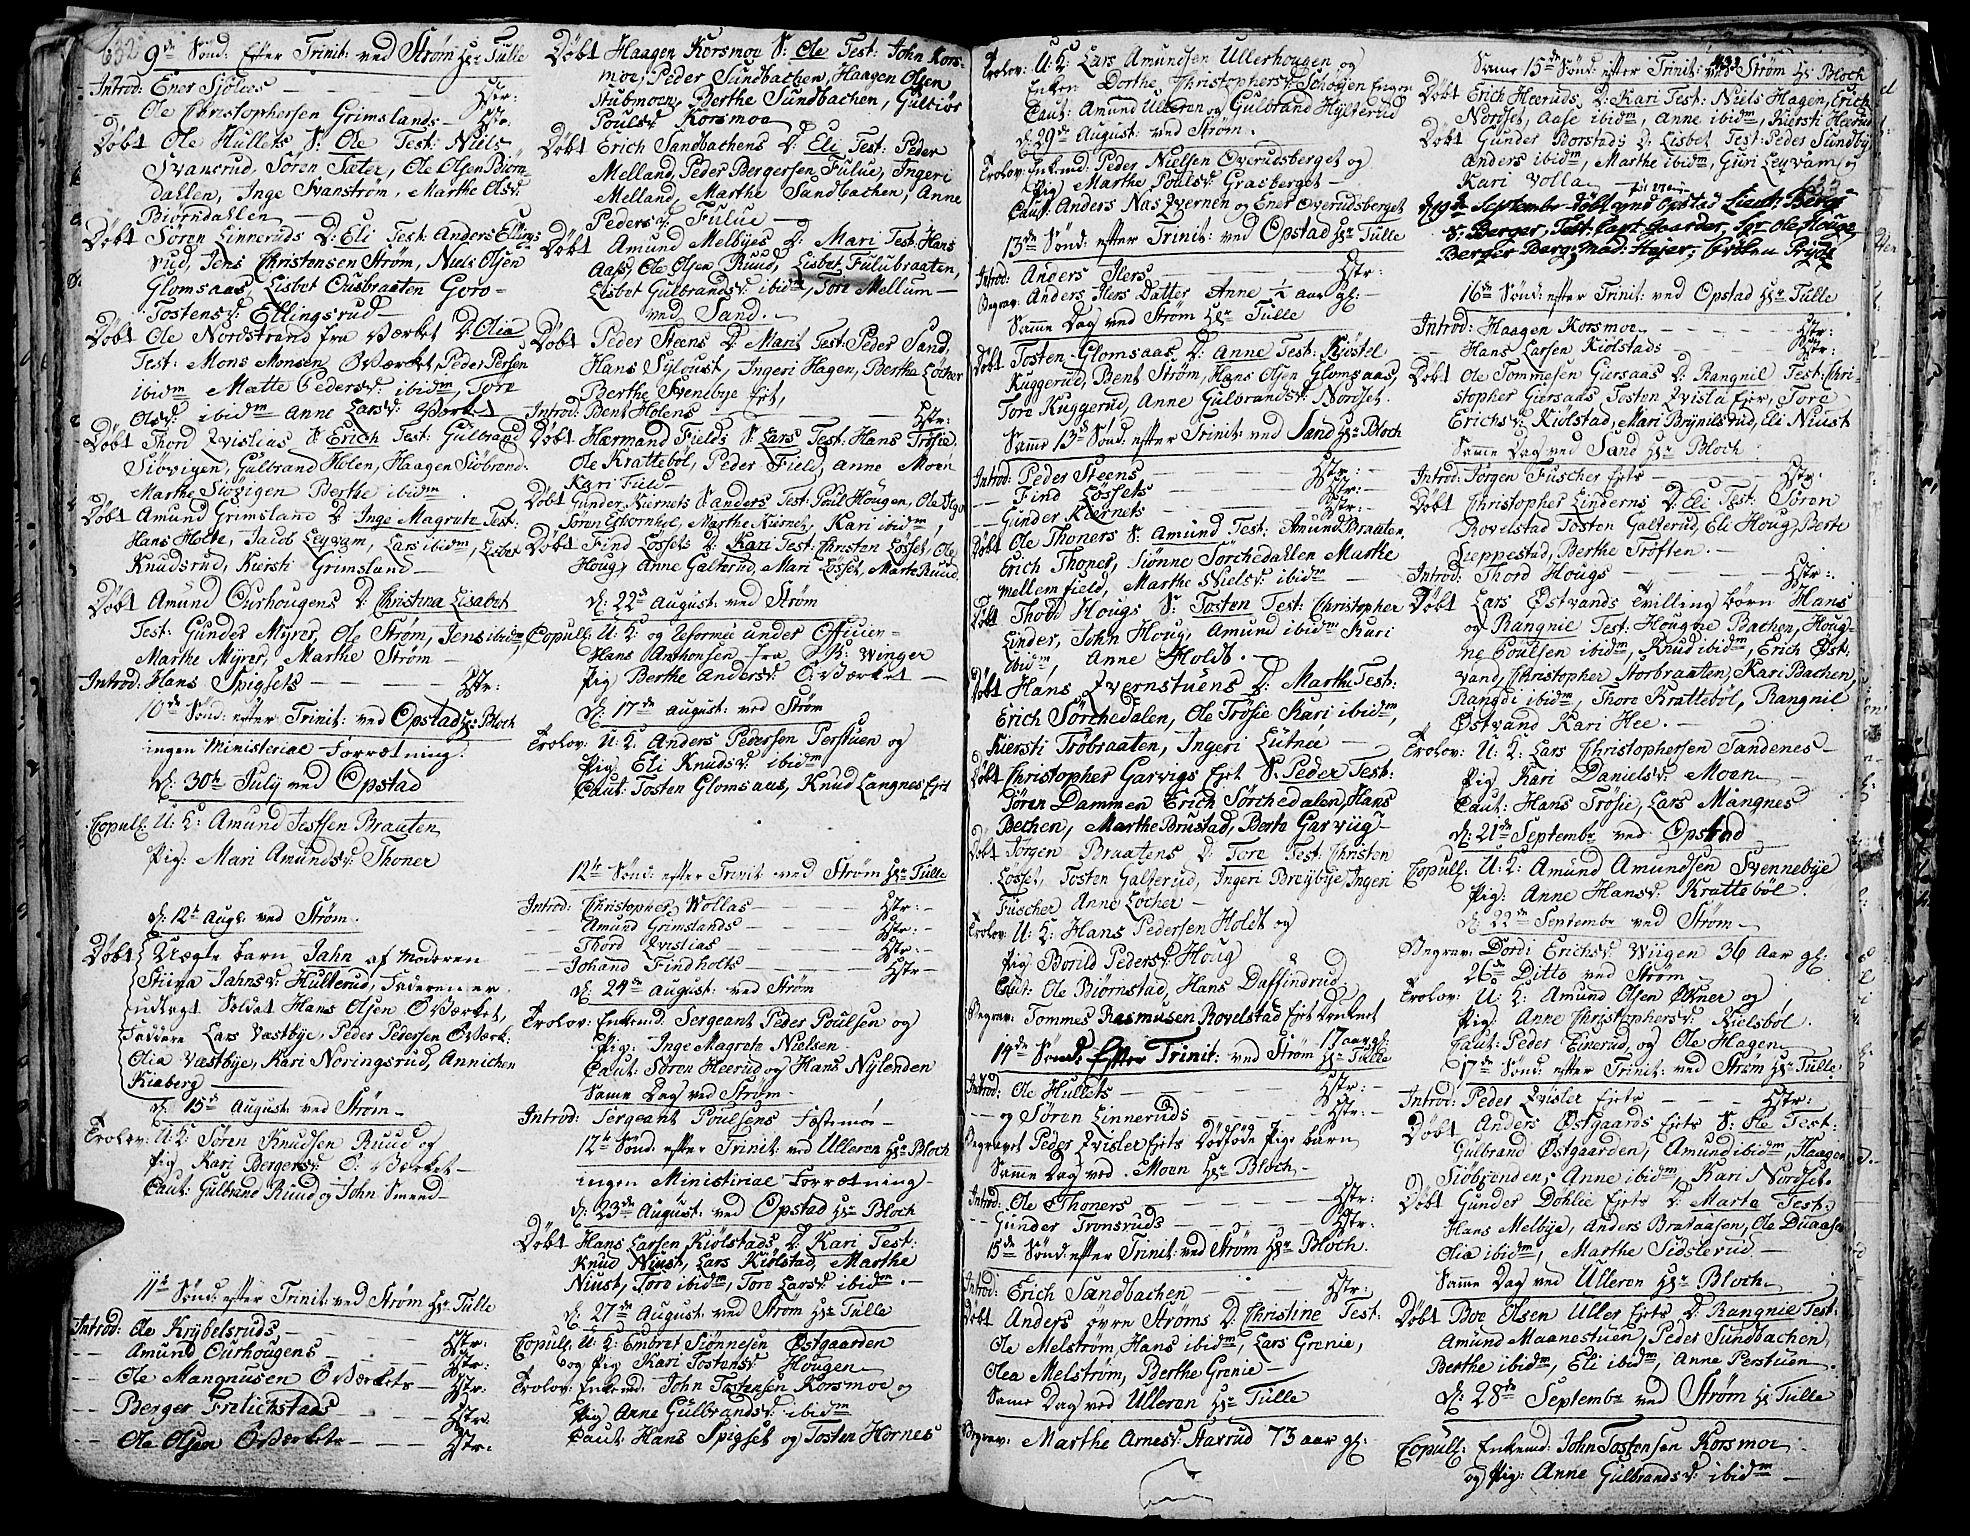 632
9de Sønd: Efter Trinit: ved Strøm Hr: Tulle
Introd: Ener Sjølies — — — Hstr:
— Ole Christophersen Grimslands — Hstr.
Døbt Ole Hullets S: Ole Test: Niels
Svansrud, Søren Sater, Ole Olsen Biørn-
dahlen, Inge Svanstrøm, Marthe Olsd:
Biørndahlen —
Døbt Søren Linneruds D: Eli Test: Anders Ellings
rud, Jens Christensen Strøm, Niels Olsen
Glomsaas, Lisbet Ousbraaten Goro-
Tostensd: Ellingsrud —
Døbt Ole Nordstrand fra Værket D: Olia
Test: Mons Monsen OVærket, Peder Persen
ibidm Mætte Pedersd: ibidm, Tore
Olsd: ibidm Anne Larsd: Værket
Døbt Thord Qvislias S: Erich Test: Gulbrand
Siøvigen, Gulbrand Holen, Haagen Siøbrend:
Marthe Siøvigen Berthe ibidm
Døbt Amund Grimslane D: Inge Magrete Test:
Hans Holte, Jacob Leyvam, Lars ibidm, Lisbet
Knudsrud, Kiersti Grimsland —
Døbt Amund Ourhougens D: Christina Lisabet
Test: Gunder Myrer, Ole Strøm, Jens ibidm,
Marthe Myrer, Marthe Strøm —
Introd: Hans Spigsets — — — Hstr:
10de Sønd: efter Trinit: ved Opstad Hr: Bloch
ingen Ministerial Forretning.
D: 30te July ved Opstad
Copul: U: K: Amund Jestsen Braaten
Pig: Mari Amundsd: Thoner
D: 12te Aug: ved Strøm.
Døbt Uægte barn Jahn af Moderen
Stina Jahnsd: Hulterud, Faderen er
udlagt Soldat Hans Olsen OVærket,
Faddere Lars Vastbye, Peder Pedersen OVærk:
Olia Vastbye, Kari Noringsrud, Annichen
Kiaberg —
D: 15de August: ved Strøm —
Trolov: U: K: Søren Knudsen Ruud og
Pig Kari Bergersd: O: Værket —
Caut: Gulbrand Ruud og John Smeed —
11te Sønd: efter Trinit: ved Strøm Hr: Tulle
Introd: Ole Krybelsruds — — Hstr:
— Amund Ourhougens — — Hstr:
— Ole Mangnusen OVærkets — Hstr:
— Berger Fredichstads — — Hstr:
— Ole Olsen OVærkets — — Hstr:
Døbt Haagen Korsmoe S: Ole Test: John Kors-
moe, Peder Sundbachen, Haagen Olsen
Stubmoen, Berthe Sundbachen, Gulbiør
Poulsd: Korsmoe
Døbt Erich Sandbachens D: Eli Test: Peder
Melland, Peder Bergersen Fulue, Ingeri
Melland, Marthe Sandbachen, Anne
Pedersd: Fulue —
Døbt Amund Melbyes D: Mari Test: Hans
Aass, Ole Olsen Ruud, Lisbet Fulubraaten,
Lisbet Gulbrandsd: ibidm, Tore Mellum —
ved Sand. —
Døbt Peder Steens D: Marit Test: Peder Sand,
Hans Syloust, Ingeri Hagen, Berthe Locher
Berthe Svenebye Ejt,
Introd: Bent Holens — — — Hstr:
Døbt Hermand Fields S: Lars Test: Hans Trøsie
Ole Krattebøl, Peder Field, Anne Moen
Kari Fule —
Døbt Gunder Kiernets S: Anders Test: Poul Hougen, Ole
Søren Ethornhol, Marthe Kiernet, Kari ibidm
Døbt Find Løssets D: Kari Test: Christen Løsset, Ole
Houg, Anne Galterud, Mari Løsset, Marte Ruud.
D: 22de August ved Strøm
Copul: U: K: og Reformée under Officier-
Hans Anthonsen fra B: Winger
Pig Berthe Andersd: O: Værket —
D: 17de August: ved Strøm
Trolov: U: K: Anders Pedersen Perstuen og
Pig: Eli Knudsd: ibidm
Caut: Tosten Glomsaas, Knud Langnes Ejet
12te Sønd: efter Trinit: ved Strøm Hr: Tulle
Introd: Christopher Wollas — — Hstr: —
— Amund Grimslands — — Hstr: —
— Thord Qvislias — — Hstr: —
— Johand Findholts — — Hstr —
D: 24de August: ved Strøm
Trolov: Enkemd: Sergeant Peder Poulsen og
Pig: Inge Magrete Nielsen
Caut: Søren Heerud og Hans Nylenden
Samme Dag ved Strøm —
Introd: Sergeant Poulsens Fæstemøe —
12te Sønd: efter Trinit: ved Ulleren Hr: Bloch
ingen Ministerial Forretning —
D: 23de August: ved Opstad Hr: Bloch
Døbt Hans Larsen Kiølstads D: Kari Test:
Knud Niust, Lars Kiølstad, Marthe
Niust, Tore ibidm, Tore Larsd: ibidm. —
D: 27de August: ved Strøm Hr: Tulle
Copul: U: K: Embret Siønnesen Østgaarden
og Pig Kari Tostensd: Hougen
Trolov: Enkemd: John Tostensen Korsmoe og
Pig Anne Gulbrandsd: ibidm
Caut: Hans Spigset og Tosten Hornes
Trolov: U: K: Lars Amundsen Ullerhougen og
Enken Dorthe Christophersd: Schoyen Engen
Caut: Amund Ulleren og Gulbrand Hytterud
D: 29de August: ved Strøm.
Trolov: Enkemd: Peder Nielsen Overudsberget og
Pig Marthe Poulsd: Grasberget —
Caut: Anders Nas Qvernen og Ener Overudsberget
13de Sønd: efter Trinit: ved Opstad Hr: Tulle
Introd: Anders Ilers — — — Hstr:
Begrav: Anders Ilers Datter Anne 1/2 aar gl: —
Samme Dag ved Strøm Hr: Tulle
Døbt Tosten Glomsaas D: Anne Test: Kiøstel
Kuggerud, Bent Strøm, Hans Olsen Glomsaas,
Tore Kuggerud, Anne Gulbrandsd: Nordset.
Samme 13de Sønd: efter Trinit: ved Sand Hr: Bloch
Introd: Peder Steens — — — Hstr: —
— Find Løssets — — — Hstr: —
— Gunder Kiernets — — — Hstr: —
Døbt Ole Thoners S: Amund Test: Amund Braaten,
Erich Thoner, Siønne Sørchedahlen Marthe
mellem field, Marthe Nielsd: ibidm —
Døbt Thord Hougs S: Tosten Test: Christopher
Linder, John Houg, Amund ibidm Kari
ibidm, Anne Holdt. —
Døbt Hans Qvernstuens D: Marthe Test:
Erich Sørchedalen, Ole Trøsie Kari ibidm,
Kiersti Trøbraaten, Ingeri Lutnée —
Døbt Christopher Garvigs Ejet S: Peder Test:
Søren Dammen Erich Sørchedalen, Hans
Bechen, Marthe Brustad, Berte Garviig —
Døbt Jørgen Braatens D: Tore Test: Christen
Løsset, Tosten Galterud, Ingeri Breybye, Ingeri
Fuscher Anne Locher —
Trolov: U: K: Hans Pedersen Holdt og
Pig Borild Pedersd: Houg
Caut: Ole Biørnstad, Hans Duffindrud,
Begrav: Tommes Rasmusen Rovelstad Ejet Druknet
17 aar gl:
14de Sønd: Efter Trinit: ved Strøm Hr: Tulle
Introd: Ole Hullets — — — Hstr: —
— og Søren Linneruds — — Hstr: —
Begravet Peder Qvisler Ejets Dødføde Pige barn
Samme Dag ved Moen Hr: Bloch —
Introd: Ole Thoners — — — Hstr:
— Gunder Tronsruds — — — Hstr:
15de Sønd: efter Trinit: ved Strøm Hr: Bloch.
Introd: Erich Sandbachen — — — Hstr:
Døbt Anders øvre Strøms D: Christine Test:
Ole Melstrøm, Hans ibidm, Lars Grenie,
Olea Melstrøm, Berthe Grenie —
Samme Dag ved Ulleren Hr: Tulle
Begrav: Marthe Arnesd: Harrud 73 aar gl:
Samme 15de Sønd: efter Trinit: ved Strøm Hr: Bloch
Døbt Erich Heeruds D: Kari Test: Niels Hagen, Erich
Nordset, Aase ibidm, Anne ibidm, Kiersti Heerud
Døbt Gunder Borstads D: Lisbet Test: Peder Sundbye
Anders ibidm, Marthe ibidm, Guri Leyvam og
Kari Volla —
633
D: 19de September døbt ved Opstad Lieut: Bergs
S: Berger, Test: Capt: Gaarder, Hr: Ole Houge
Berger Berg, Mad: Høyer, Frøken Prydz
16de Sønd: efter Trinit: ved Opstad Hr: Tulle
Introd: Haagen Korsmoe — — — Hstr:
— Hans Larsen Kiølstads — — Hstr:
Døbt Ole Tommesen Giersaas D: Rangnil Test: Chri-
stopher Giersaas Tosten Qvisla Ejer, Tore
Erichsd: Kiølstad, Mari Brynilsrud, Eli Niust
Samme Dag ved Sand Hr: Bloch
Introd: Jørgen Fuscher Ejets — — Hstr
Døbt Christopher Linderns D: Eli Test: Søren
Rovelstad Tosten Galterud, Ele Houg, Berte
Seppestad, Berthe Trøften. —
Introd: Thord Hougs — — — Hstr:
Døbt Lars Østvands Tvilling børn Hans
og Rangnie Test: Hougne Bachen, Houg-
ne Poulsen ibidm, Knud ibidm, Erich Øst-
vand, Christopher Storbraaten, Kari Bachen,
Rangdi ibidm, Thore Krattebøl, Rangnil
Østvand Kari Hee. —
Trolov: U: K: Lars Christophersen Sandenes —
Pig Kari Danielsd: Moen —
Caut: Hans Trøsie, Lars Mangnes
D: 21de Septembr: ved Opstad
Copul: U: K: Amund Amundsen Svennebye
Pig: Anne Hansd: Krattebøl.
D: 22de Septembr ved Strøm —
Begrav: Dordi Erichsd: Wiigen 36 Aar gl:
26de Ditto ved Strøm
Trolov: U: K: Amund Olsen Økner og
Pig: Anne Christophersd: Kielsbøl.
Caut: Peder Einerud, og Ole Hagen
17de Sønd: efter Trinit: ved Strøm Hr: Tulle
Introd: Peder Qvisler Ejets — — Hstr:
Døbt Anders Østgaards Ejets S: Ole Test:
Gulbrand Østgaarden, Amund ibidm, Haagen
Siøbrenden, Anne ibidm, Kari Nordset.
Døbt Gunder Dohlie Ejets D: Marte Test:
Hans Melbye, Anders Brataasen, Ole Diaasen
Olia ibidm, Marthe Sidslerud —
Samme Dag ved Ulleren Hr: Bloch
Døbt Boe Olsen Uller Ejets D: Rangnie Test:
Amund Maanestuen, Peder Sundbachen,
Berthe ibidm, Eli ibidm, Anne Perstuen.
D: 28de Septembr ved Strøm Hr Tulle
Copul: Enkemd: John Tostensen Korsmoe
og Pig: Anne Gulbrandsd: ibidm —